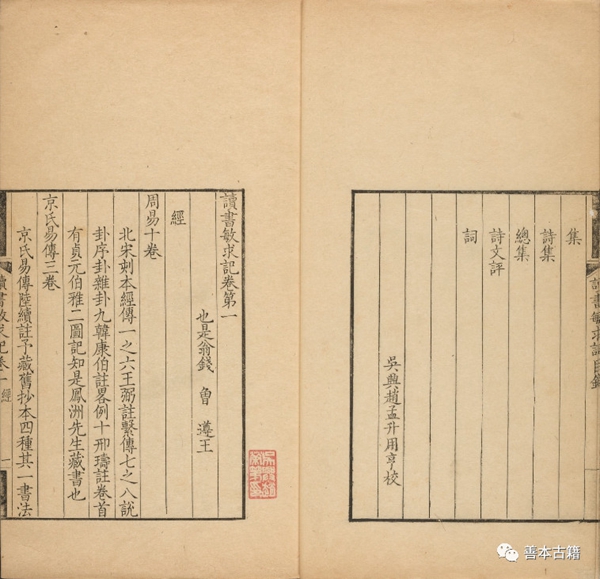 讀書敏求記目錄
集
詩集
總集
詩文評
詞
吳興趙孟升用亨校
讀書敏求記卷第一
也是翁錢 曾 遵王
經
周易十卷
北宋刻本經傳一之六王弼註繫傳七之八說
卦序卦雜卦九韓康伯註畧例十邢璹註卷首
有貞元伯雅二圖記知是鳳洲先生藏書也
京氏易傳三卷
京氏易傳陸績註予藏舊抄本四種其一書法
讀書敏求記卷一 經 一
善本古籍